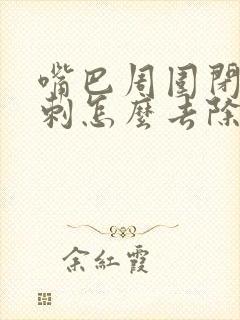 嘴巴周围閉
刺怎麽去除
余紅霞